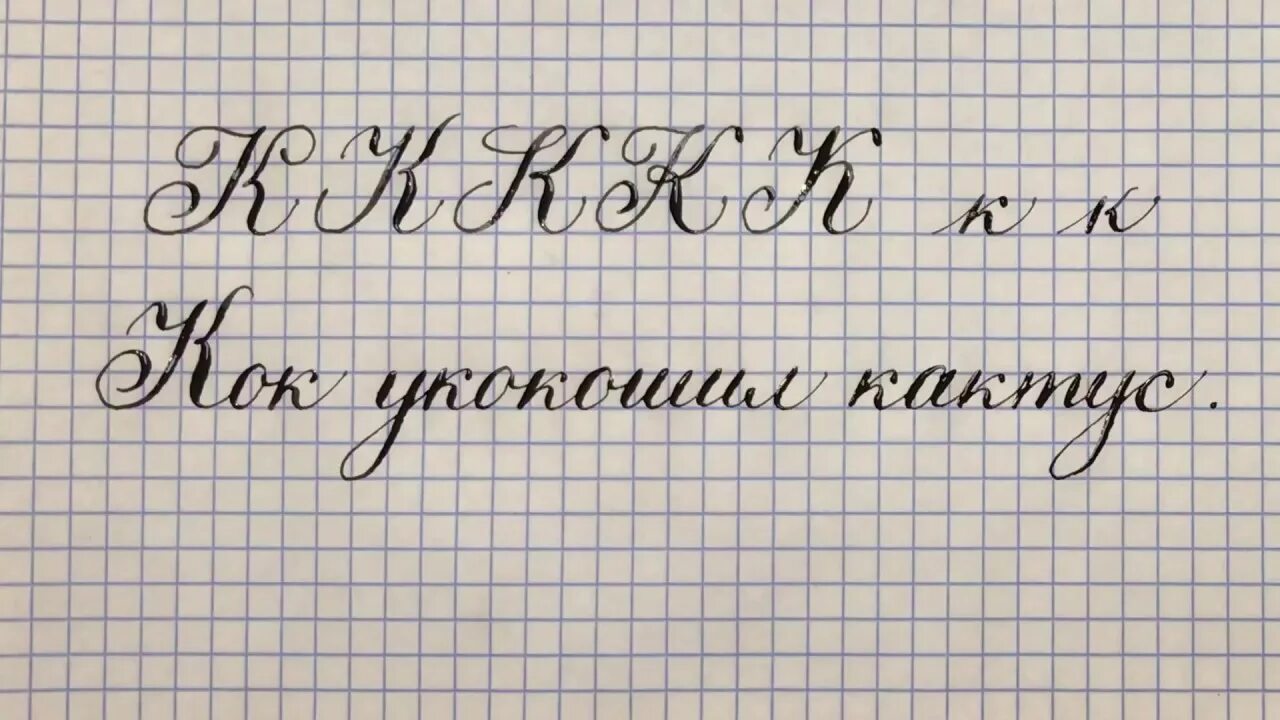 К К К К К к к
Кок укокошил кактус.